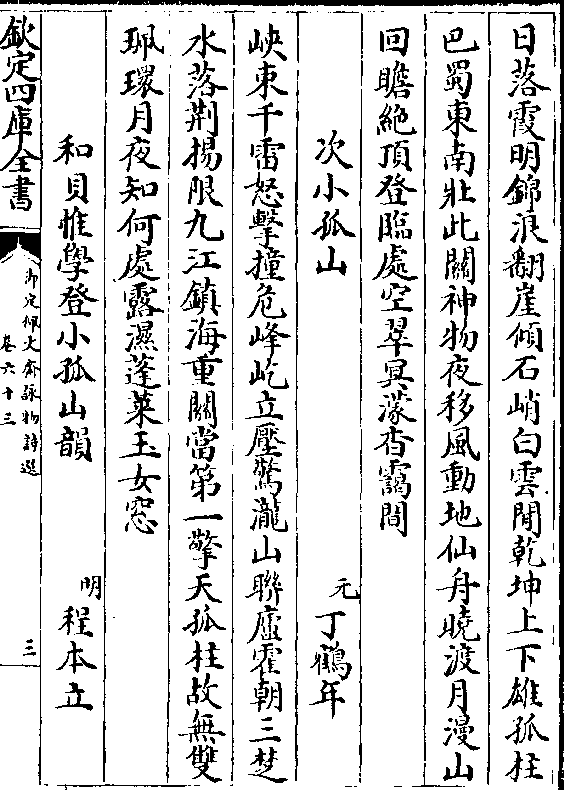 日落霞明錦浪翻崖傾石峭白雲閒乾坤上下雄孤柱
巴蜀東南壯此關神物夜移風動地仙舟曉渡月漫山
回瞻絶頂登臨處空翠冥濛杳靄間
次小孤山
元 丁鶴年
峽束千雷怒擊撞危峰屹立壓驚瀧山聯廬霍朝三楚
水落荆揚限九江鎮海重關當第一擎天孤柱故無雙
珮環月夜知何處露濕蓬萊玉女窓
和貝惟學登小孤山韻
明 程本立
欽定四庫全書
御定佩文齋詠物詩選
卷六十三
三